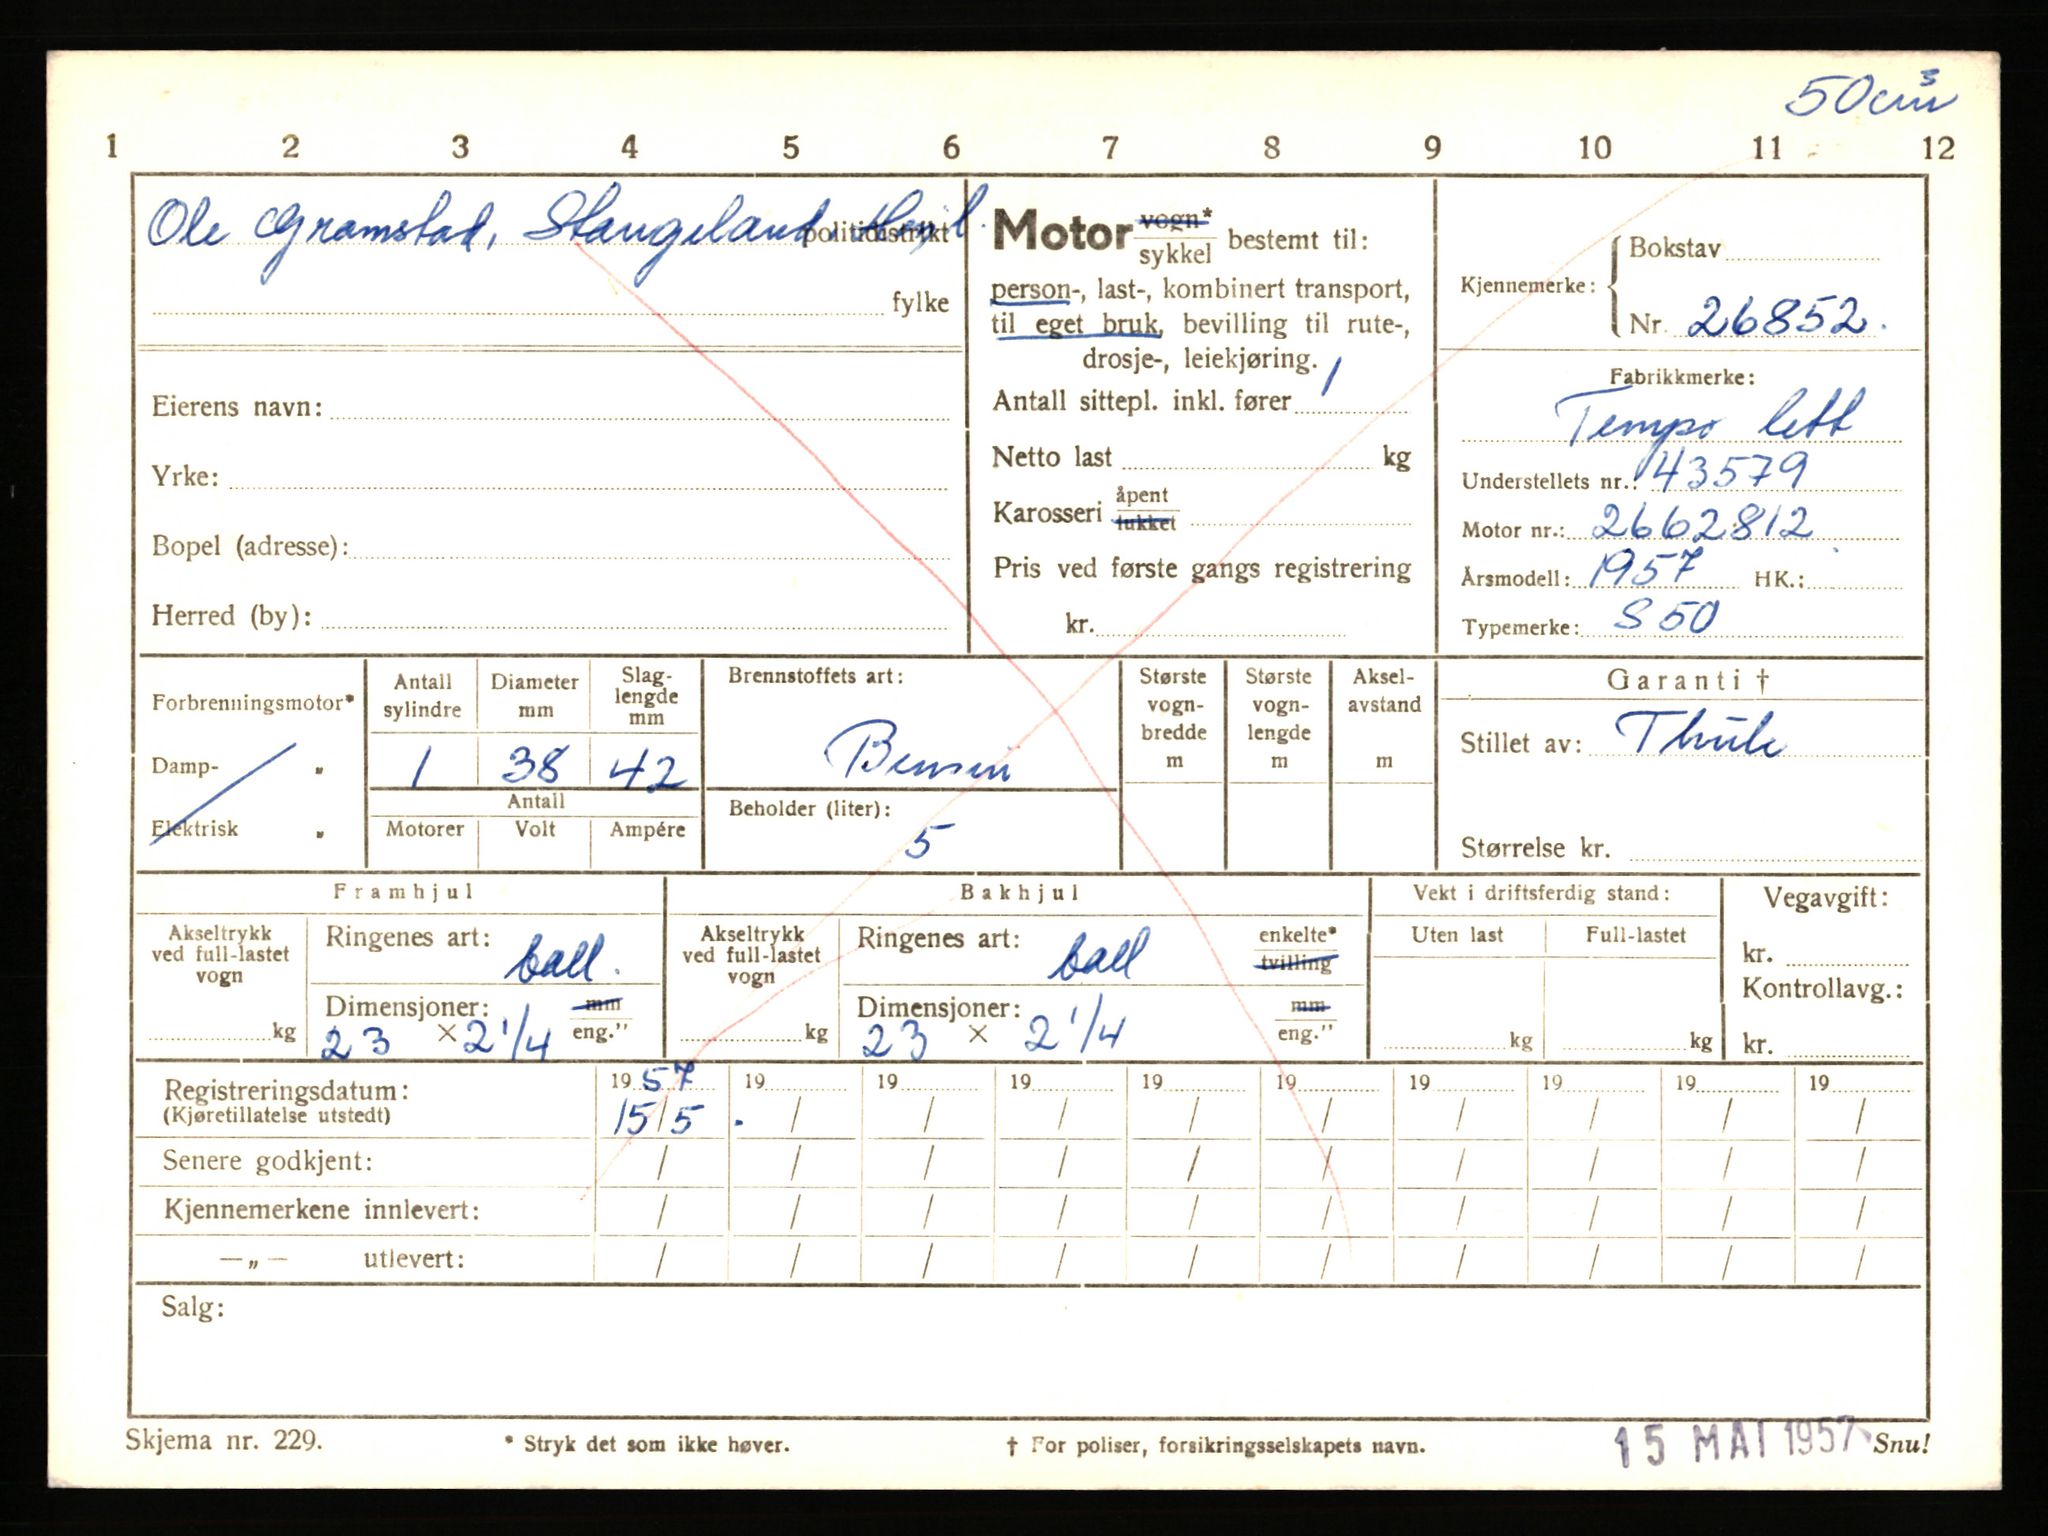 50 cm³
1 2 3 4 5 6 7 8 9 10 11 12
Ole Gramstad, Stangeland, politidistrikt
fylke
Eierens navn:
Yrke:
Bopel (adresse):
Herred (by):
Motor vogn* sykkel bestemt til:
person-, last-, kombinert transport,
til eget bruk, bevilling til rute-,
drosje-, leiekjøring.
Antall sittepl. inkl. fører 1
Netto last kg
Karosseri åpent lukket
Pris ved første gangs registrering
kr.
Kjennemerke: Bokstav
Nr. 26852.
Fabrikkmerke:
Tempo lett
Understellets nr.: 43579
Motor nr.: 2662812
Årsmodell: 1957 HK.:
Typemerke: S 50
Forbrenningsmotor*
Damp- „
Elektrisk „
Antall sylindre
1
Diameter mm
38
Slag-lengde mm
42
Antall
Motorer Volt Ampére
Brennstoffets art:
Bensin
Beholder (liter):
5
Største vogn-bredde m
Største vogn-lengde m
Aksel-avstand m
Garanti †
Stillet av: Thule
Størrelse kr.
Framhjul
Akseltrykk ved full-lastet vogn
kg
Ringenes art:
ball.
Dimensjoner: mm
23 × 2 1/4 eng."
Bakhjul
Akseltrykk ved full-lastet vogn
kg
Ringenes art: enkelte*
ball tvilling
Dimensjoner: mm
23 × 2 1/4 eng."
Vekt i driftsferdig stand:
Uten last Full-lastet
kg kg
Vegavgift:
kr.
Kontrollavg.:
kr.
Registreringsdatum: 19 57 19 19 19 19 19 19 19 19 19
(Kjøretillatelse utstedt) 15/5. / / / / / / / / /
Senere godkjent: / / / / / / / / / /
Kjennemerkene innlevert: / / / / / / / / / /
—„— utlevert: / / / / / / / / / /
Salg:
Skjema nr. 229. * Stryk det som ikke høver. † For poliser, forsikringsselskapets navn. 15 MAI 1957 Snu!